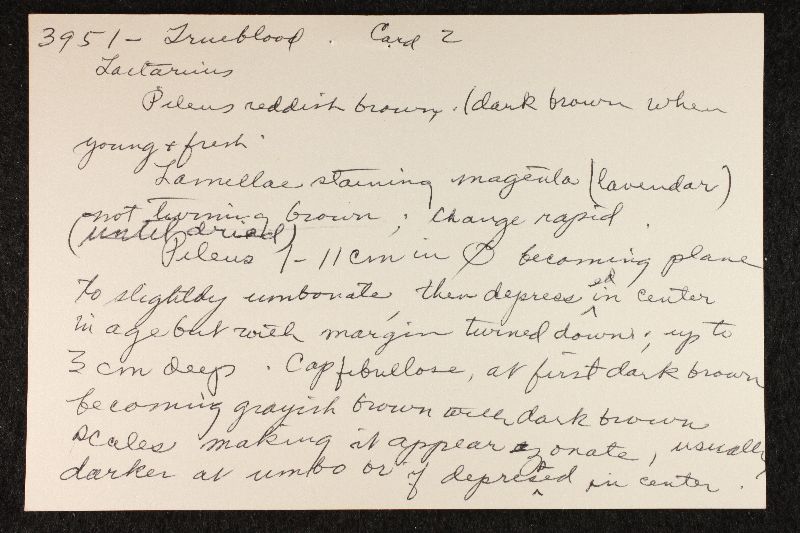 3951 - Trueblood . Card 2
Lactarius
Pileus reddish brown, (dark brown when
young & fresh.
Lamellae staining magenta (lavendar)
not turning brown ; change rapid .
(until dried)
Pileus 1 - 11 cm in ∅ becoming plane
to slightly umbonate, then depressed in center
in age but with margin turned down, up to
3 cm deep . Cap fibullose, at first dark brown
becoming grayish brown with dark brown
scales making it appear zonate, usually
darker at umbo or if depressed in center .